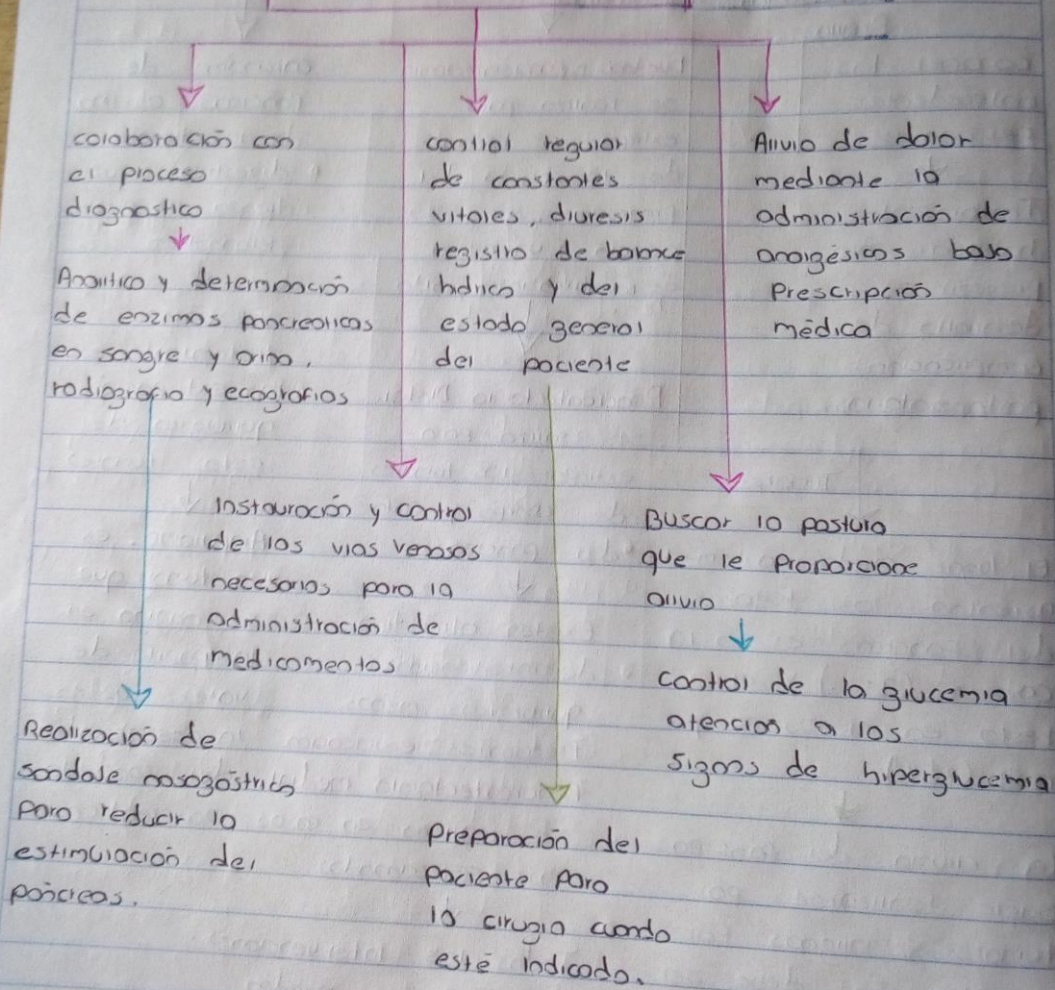 colaboración con
el proceso
diagnostico
Analitica y determinación
de enzimas pancreaticas
en sangre y orina,
radiografia y ecografias
control regular
de constantes
vitales, diuresis
registro de balance
hidrico y del
estado general
del paciente
Alivio de dolor
mediante la
administración de
analgésicos bajo
Prescripción
médica
Instauración y control
de las vias venosas
necesarias para la
administración de
medicamentos
Buscar la postura
que le proporcione
alivio
control de la glucemia
atencion a los
signos de hiperglucemia
Realización de
sondaje nasogástrico
para reducir la
estimulación del
páncreas.
Preparación del
paciente para
la cirugia cuando
esté indicado.